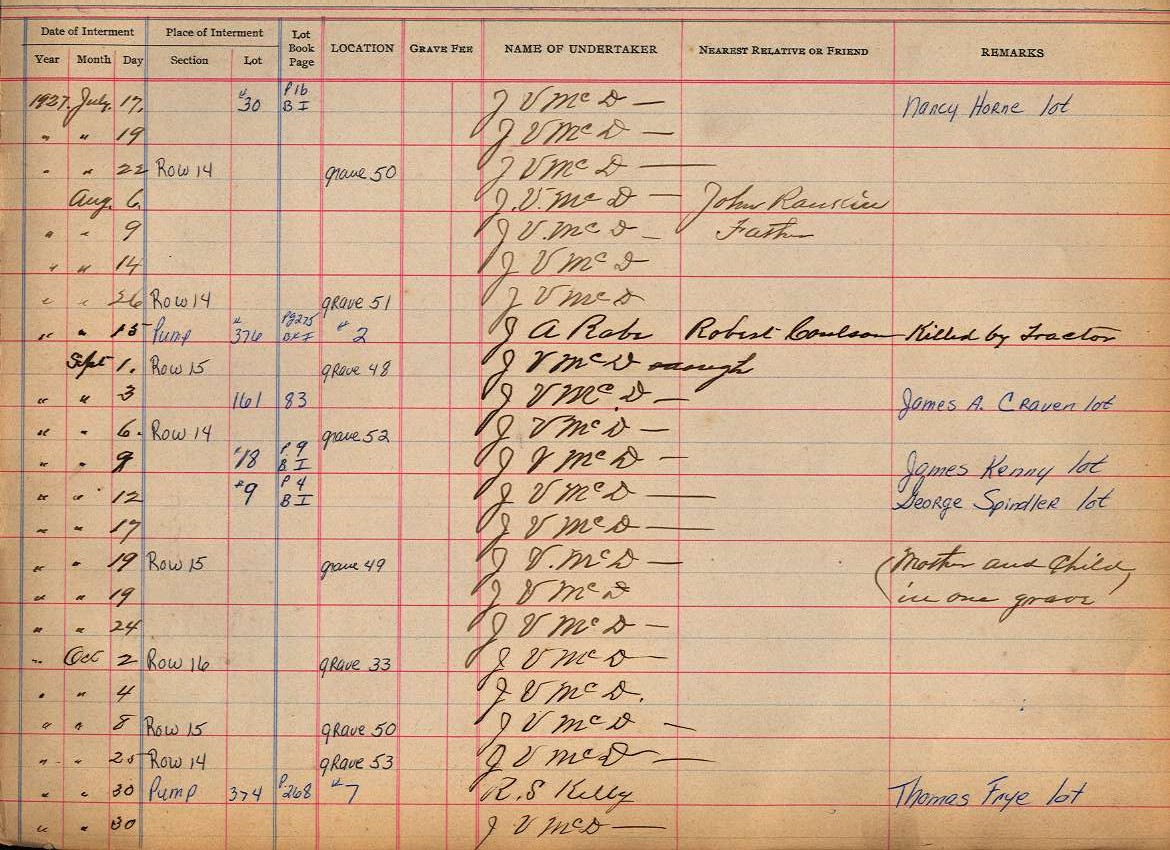 Date of Interment Place of Interment Lot Book Page LOCATION GRAVE FEE NAME OF UNDERTAKER NEAREST RELATIVE OR FRIEND REMARKS
Year Month Day Section Lot
1927. July. 17. #30 P16 B I J V McD — Nancy Horne lot
" " 19 J V McD —
" " 22 Row 14 grave 50 J V McD —
Aug. 6. J. V. McD — John Rankin
" " 9 J V. McD — Father
" " 14 J V McD
" " 26 Row 14 grave 51 J V McD
" " 15 Pump #376 Pg275 Bk I #2 J A Rabe Robert Coulson Killed by Tractor
Sept 1. Row 15 grave 48 J V McD
" " 3 161 83 J V McD — James A. Craven lot
" " 6. Row 14 grave 52 J V McD —
" " 9 #18 P 9 B I J V McD — James Kenny lot
" " 12 #9 P 4 B I J V McD — George Spindler lot
" " 17 J V McD —
" " 19 Row 15 grave 49 J V. McD — (Mother and Child
" " 19 J V McD in one grave)
" " 24 J V McD —
" Oct 2 Row 16 grave 33 J V McD —
" " 4 J V McD.
" " 8 Row 15 grave 50 J V McD —
" " 25 Row 14 grave 53 J V McD —
" " 30 Pump 374 P268 #7 R. S Kelly Thomas Frye lot
" " 30 J V McD —